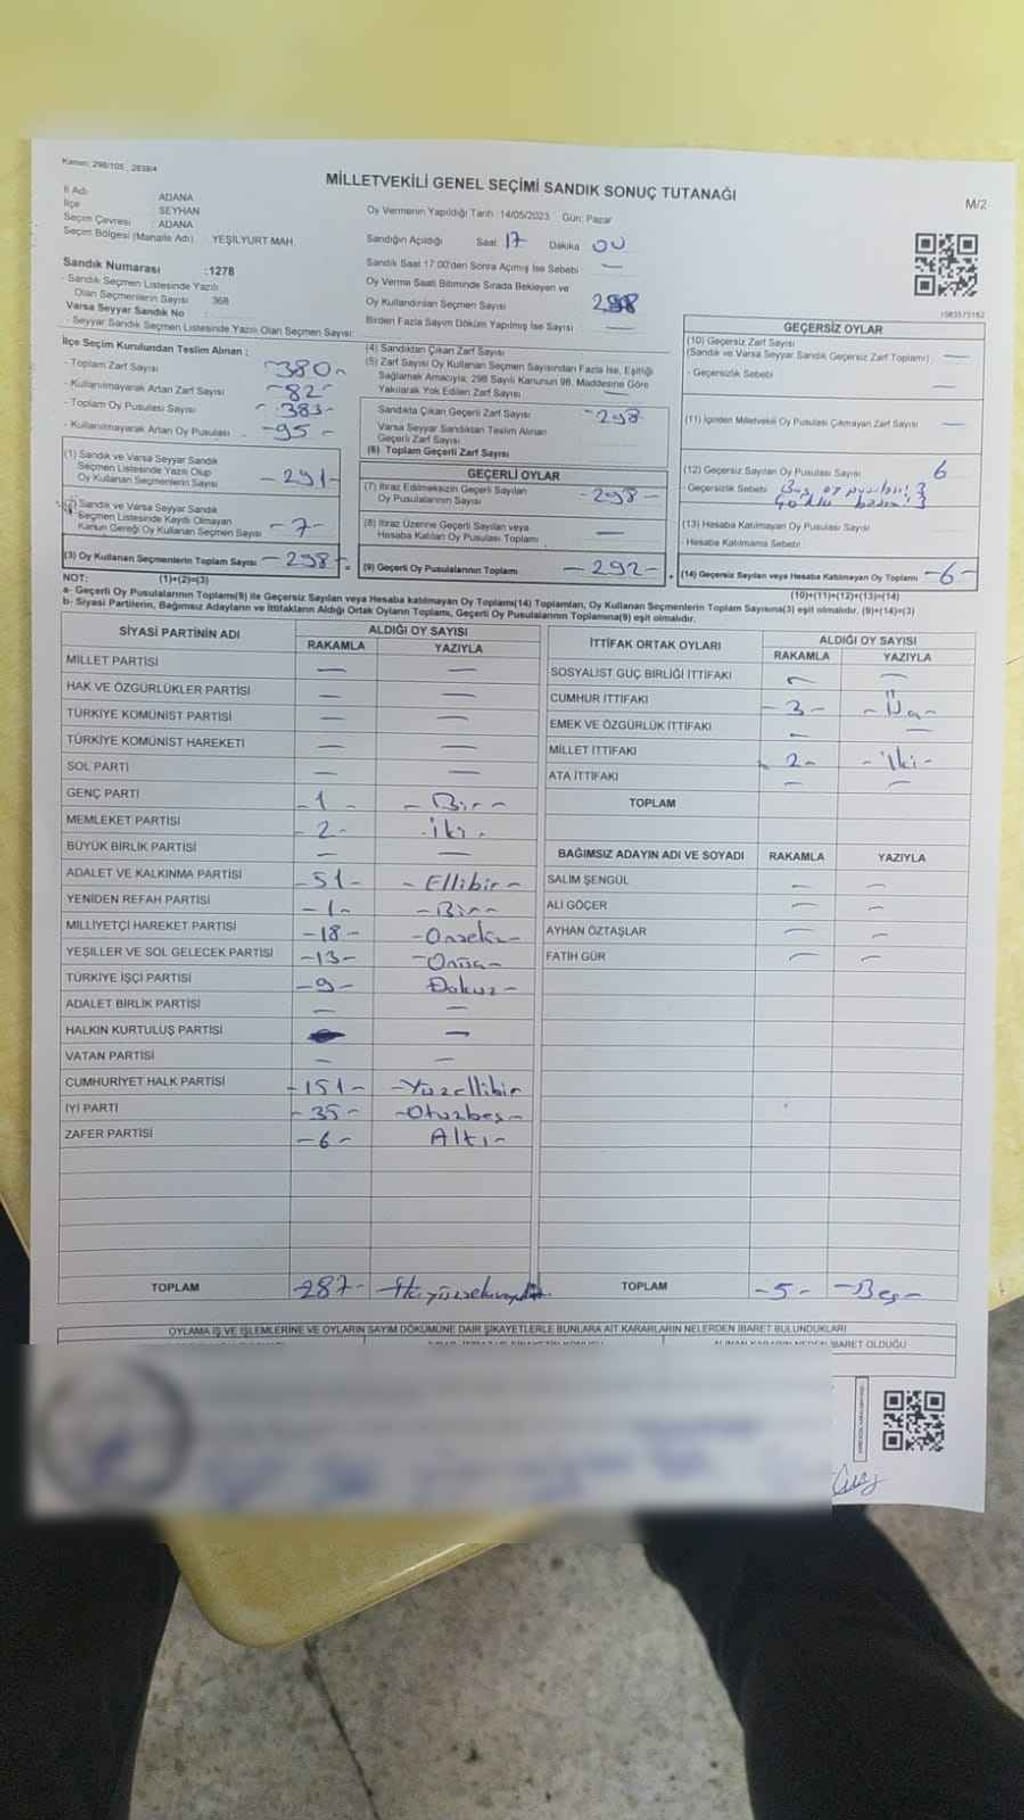 Kanun: 298/105 , 2839/4
MİLLETVEKİLİ GENEL SEÇİMİ SANDIK SONUÇ TUTANAĞI
M/2
İl Adı ADANA
İlçe : SEYHAN
Seçim Çevresi : ADANA
Seçim Bölgesi (Mahalle Adı) YEŞİLYURT MAH.
Oy Vermenin Yapıldığı Tarih :14/05/2023 Gün: Pazar
Sandığın Açıldığı Saat 17 Dakika 00
Sandık Saat 17:00'den Sonra Açılmış İse Sebebi —
Oy Verme Saati Bitiminde Sırada Bekleyen ve
Oy Kullandırılan Seçmen Sayısı 298
Birden Fazla Sayım Döküm Yapılmış İse Sayısı —
Sandık Numarası :1278
- Sandık Seçmen Listesinde Yazılı
Olan Seçmenlerin Sayısı 368
Varsa Seyyar Sandık No
- Seyyar Sandık Seçmen Listesinde Yazılı Olan Seçmen Sayısı:
İlçe Seçim Kurulundan Teslim Alınan :
- Toplam Zarf Sayısı -380-
- Kullanılmayarak Artan Zarf Sayısı -82-
- Toplam Oy Pusulası Sayısı -383-
- Kullanılmayarak Artan Oy Pusulası -95-
(1) Sandık ve Varsa Seyyar Sandık
Seçmen Listesinde Yazılı Olup
Oy Kullanan Seçmenlerin Sayısı -291-
(2) Sandık ve Varsa Seyyar Sandık
Seçmen Listesinde Kayıtlı Olmayan
Kanun Gereği Oy Kullanan Seçmen Sayısı -7-
(3) Oy Kullanan Seçmenlerin Toplam Sayısı -298-
(4) Sandıktan Çıkan Zarf Sayısı
(5) Zarf Sayısı Oy Kullanan Seçmen Sayısından Fazla İse, Eşitliği
Sağlamak Amacıyla, 298 Sayılı Kanunun 98. Maddesine Göre
Yakılarak Yok Edilen Zarf Sayısı —
Sandıkta Çıkan Geçerli Zarf Sayısı -298-
Varsa Seyyar Sandıktan Teslim Alınan
Geçerli Zarf Sayısı
(6) Toplam Geçerli Zarf Sayısı
GEÇERLİ OYLAR
(7) İtiraz Edilmeksizin Geçerli Sayılan
Oy Pusulalarının Sayısı -298-
(8) İtiraz Üzerine Geçerli Sayılan veya
Hesaba Katılan Oy Pusulası Toplamı —
(9) Geçerli Oy Pusulalarının Toplamı -292-
GEÇERSİZ OYLAR
(10) Geçersiz Zarf Sayısı
(Sandık ve Varsa Seyyar Sandık Geçersiz Zarf Toplamı) —
- Geçersizlik Sebebi —
(11) İçinden Milletvekili Oy Pusulası Çıkmayan Zarf Sayısı —
(12) Geçersiz Sayılan Oy Pusulası Sayısı 6
- Geçersizlik Sebebi Boş oy pusulası: 3
(13) Hesaba Katılmayan Oy Pusulası Sayısı
- Hesaba Katılmama Sebebi
(14) Geçersiz Sayılan veya Hesaba Katılmayan Oy Toplamı -6-
NOT: (1)+(2)=(3) (10)+(11)+(12)+(13)=(14)
a- Geçerli Oy Pusulalarının Toplamı(9) ile Geçersiz Sayılan veya Hesaba katılmayan Oy Toplamı(14) Toplamları, Oy Kullanan Seçmenlerin Toplam Sayısına(3) eşit olmalıdır. (9)+(14)=(3)
b- Siyasi Partilerin, Bağımsız Adayların ve İttifakların Aldığı Ortak Oyların Toplamı, Geçerli Oy Pusulalarının Toplamına(9) eşit olmalıdır.
SİYASİ PARTİNİN ADI ALDIĞI OY SAYISI
RAKAMLA YAZIYLA
MİLLET PARTİSİ — —
HAK VE ÖZGÜRLÜKLER PARTİSİ — —
TÜRKİYE KOMÜNİST PARTİSİ — —
TÜRKİYE KOMÜNİST HAREKETİ — —
SOL PARTİ — —
GENÇ PARTİ -1- -Bir-
MEMLEKET PARTİSİ -2- -iki-
BÜYÜK BİRLİK PARTİSİ — —
ADALET VE KALKINMA PARTİSİ -51- -Ellibir-
YENİDEN REFAH PARTİSİ -1- -Bir-
MİLLİYETÇİ HAREKET PARTİSİ -18- -Onsekiz-
YEŞİLLER VE SOL GELECEK PARTİSİ -13- -Onüç-
TÜRKİYE İŞÇİ PARTİSİ -9- Dokuz-
ADALET BİRLİK PARTİSİ — —
HALKIN KURTULUŞ PARTİSİ —
VATAN PARTİSİ — —
CUMHURİYET HALK PARTİSİ -151- -Yüzellibir
İYİ PARTİ -35- -Otuzbeş-
ZAFER PARTİSİ -6- Altı-
TOPLAM -287-
İTTİFAK ORTAK OYLARI ALDIĞI OY SAYISI
RAKAMLA YAZIYLA
SOSYALİST GÜÇ BİRLİĞİ İTTİFAKI — —
CUMHUR İTTİFAKI -3- -Üç-
EMEK VE ÖZGÜRLÜK İTTİFAKI — —
MİLLET İTTİFAKI -2- -İki-
ATA İTTİFAKI — —
TOPLAM
BAĞIMSIZ ADAYIN ADI VE SOYADI RAKAMLA YAZIYLA
SALİM ŞENGÜL — —
ALİ GÖÇER — —
AYHAN ÖZTAŞLAR — —
FATİH GÜR — —
TOPLAM -5- -Beş-
OYLAMA İŞ VE İŞLEMLERİNE VE OYLARIN SAYIM DÖKÜMÜNE DAİR ŞİKAYETLERLE BUNLARA AİT KARARLARIN NELERDEN İBARET BULUNDUKLARI